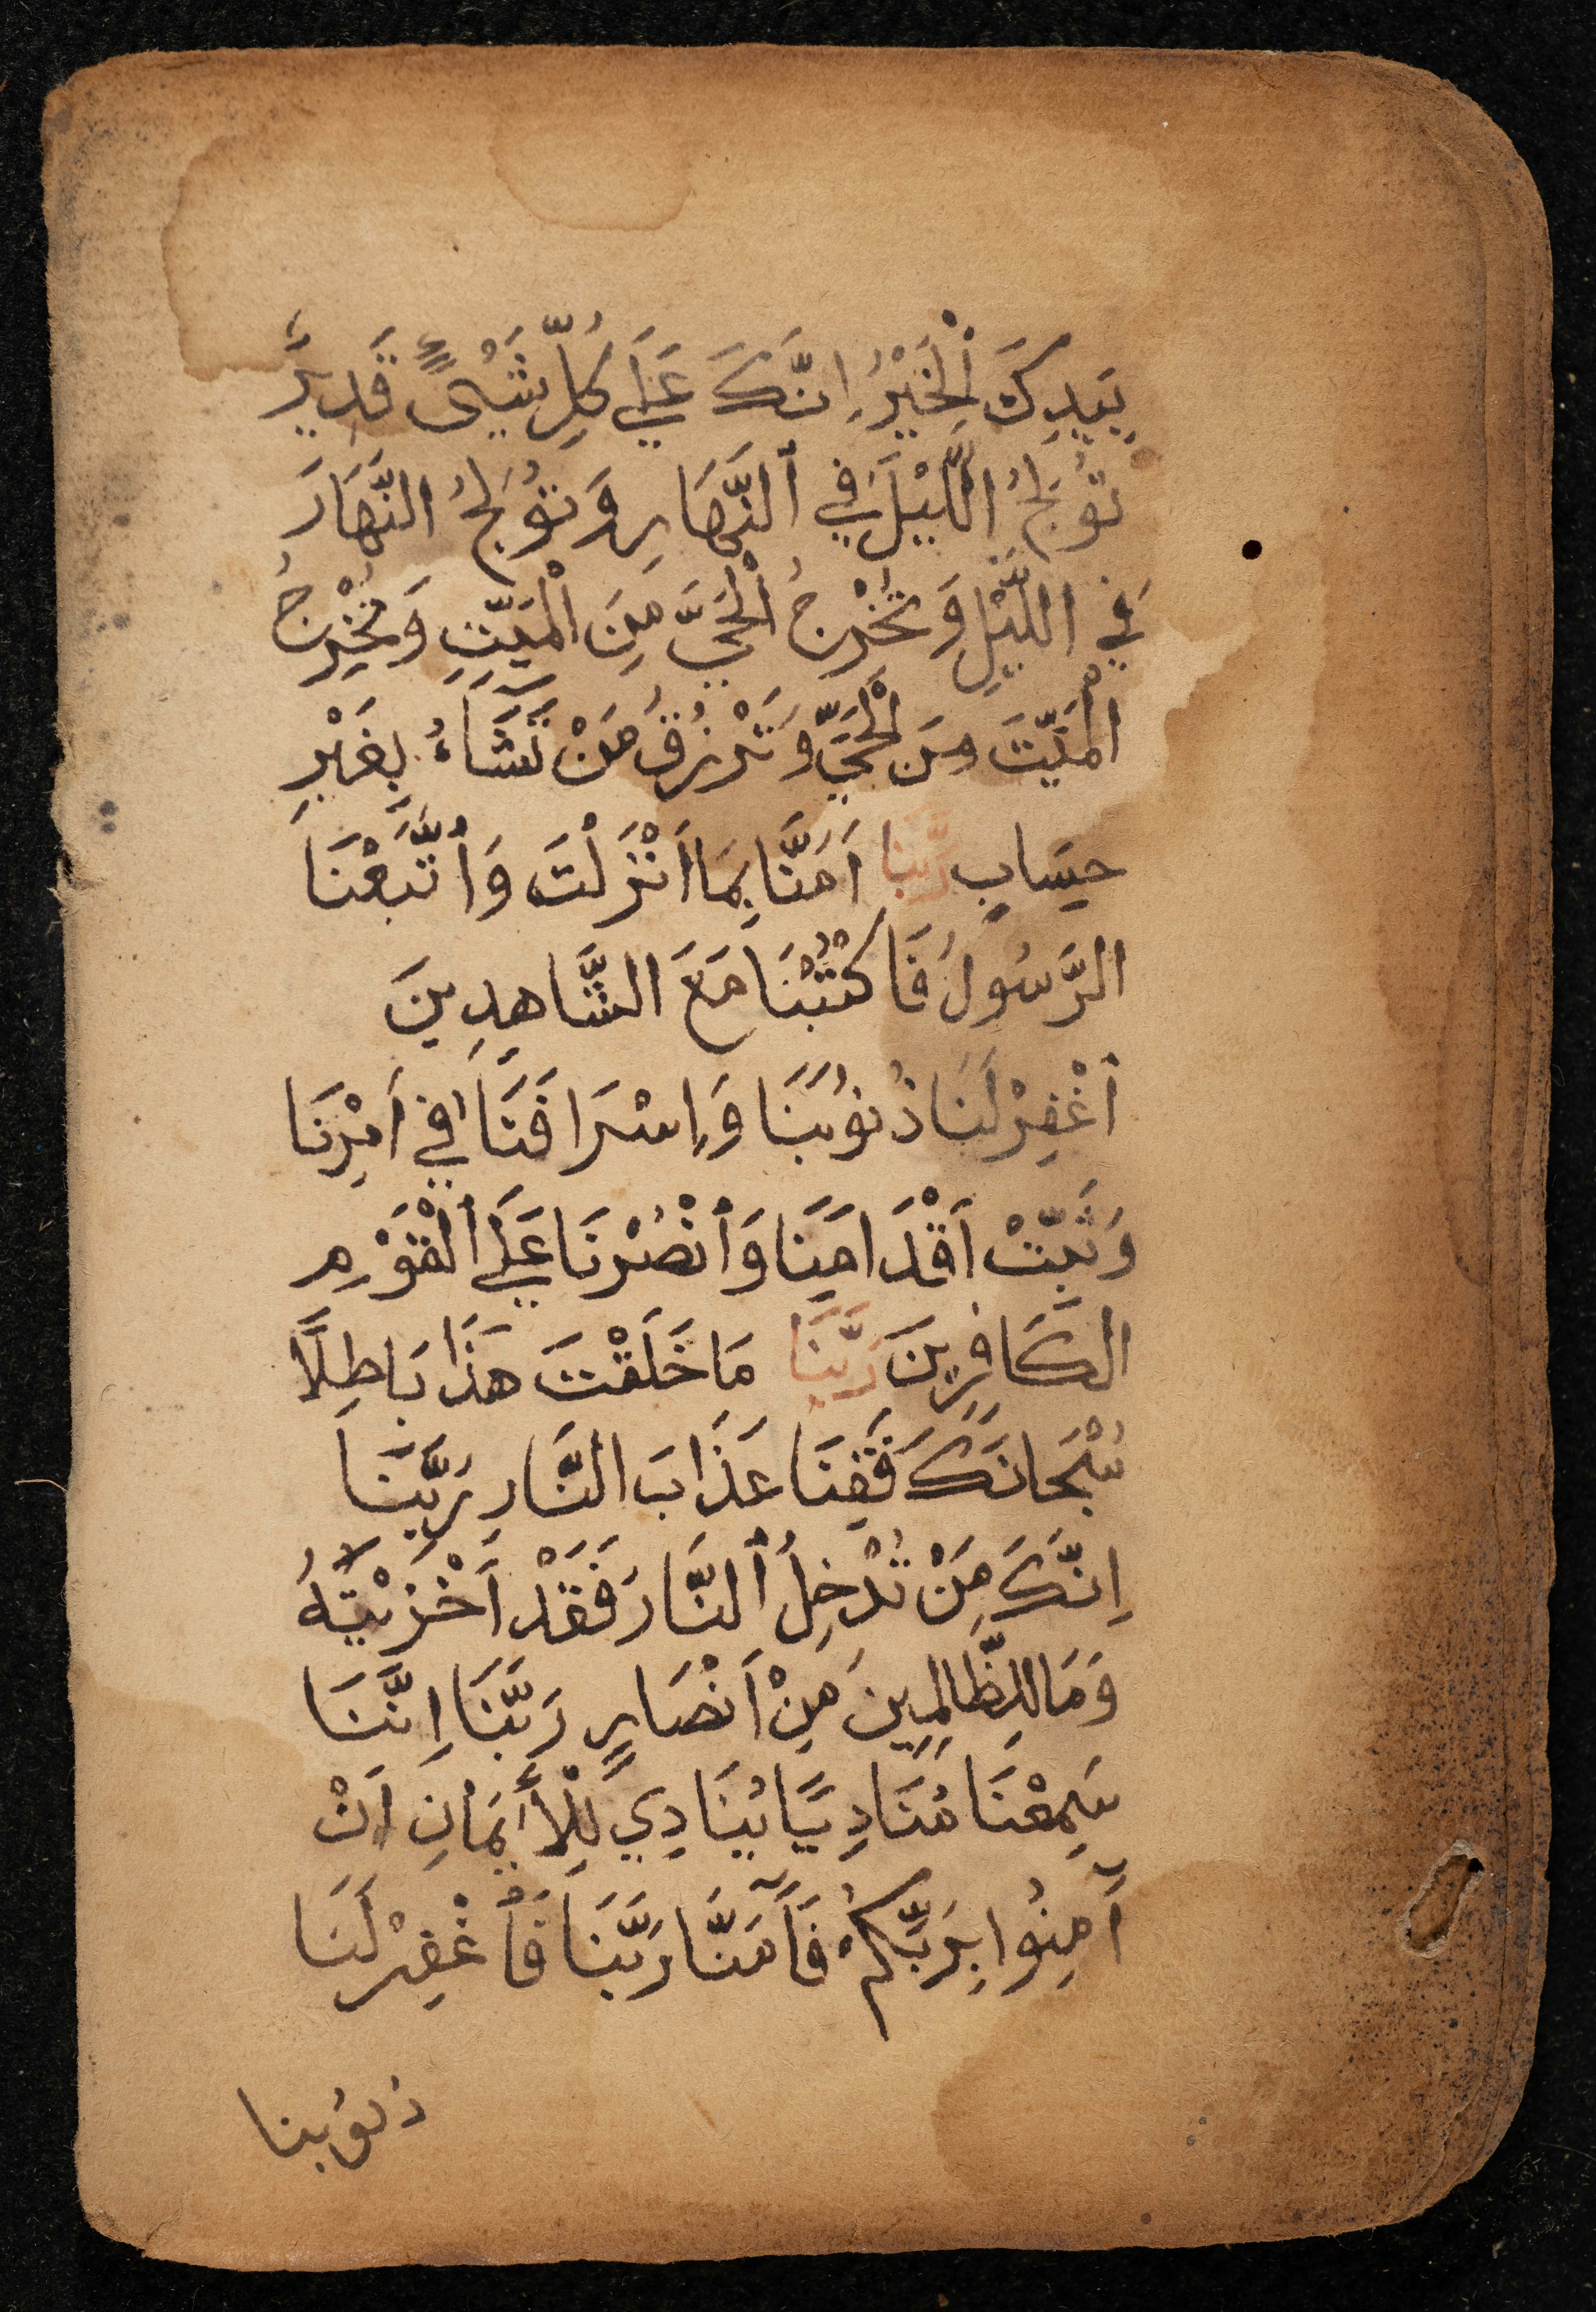 بِيَدِكَ الْخَيْرُ اِنَّكَ عَلَي كُلِّ شَيْىءٍ قَدِيرٌ
تُوْلِجُ اللَّيْلَ فِي ٱلنَّهَارِ وَتُوْلِجُ النَّهَارَ
فِي اللَّيْلِ وَتُخْرِجُ الْحَيَّ مِنَ الْمَيِّتِ وَتُخْرِجُ
الْمَيِّتَ مِنَ الْحَيِّ وَتَرْزُقُ مَنْ تَشَآءُ بِغَيْرِ
حِسَابٍ رَبَّنَا اَمَنَّا بِمَا اَنْزَلْتَ وَٱتَّبَعْنَا
الرَّسُولَ فَاكْتُبْنَا مَعَ الشَّاهِدِينَ
ٱغْفِرْ لَنَا ذُنُوْبَنَا وَاِسْرَافَنَا فِي اَمْرِنَا
وَثَبِّتْ اَقْدَامَنَا وَٱنْصُرْنَا عَلَي ٱلْقَوْمِ
الْكَافِرِينَ رَبَّنَا مَا خَلَقْتَ هَذَا بَاطِلًا
سُبْحَانَكَ فَقِنَا عَذَابَ النَّارِ رَبَّنَا
اِنَّكَ مَنْ تُدْخِلُ ٱلنَّارَ فَقَدْ اَخْزَيْتَهُ
وَمَا لِلظَّالِمِينَ مِنْ اَنْصَارٍ رَبَّنَا اِنَّنَا
سَمِعْنَا مُنَادِيًا يُنَادِي لِلْأِيمَانِ اَنْ
آمِنُوا بِرَبِّكُمْ فَآَمَنَّا رَبَّنَا فَٱغْفِرْ لَنَا
ذنُوبنا